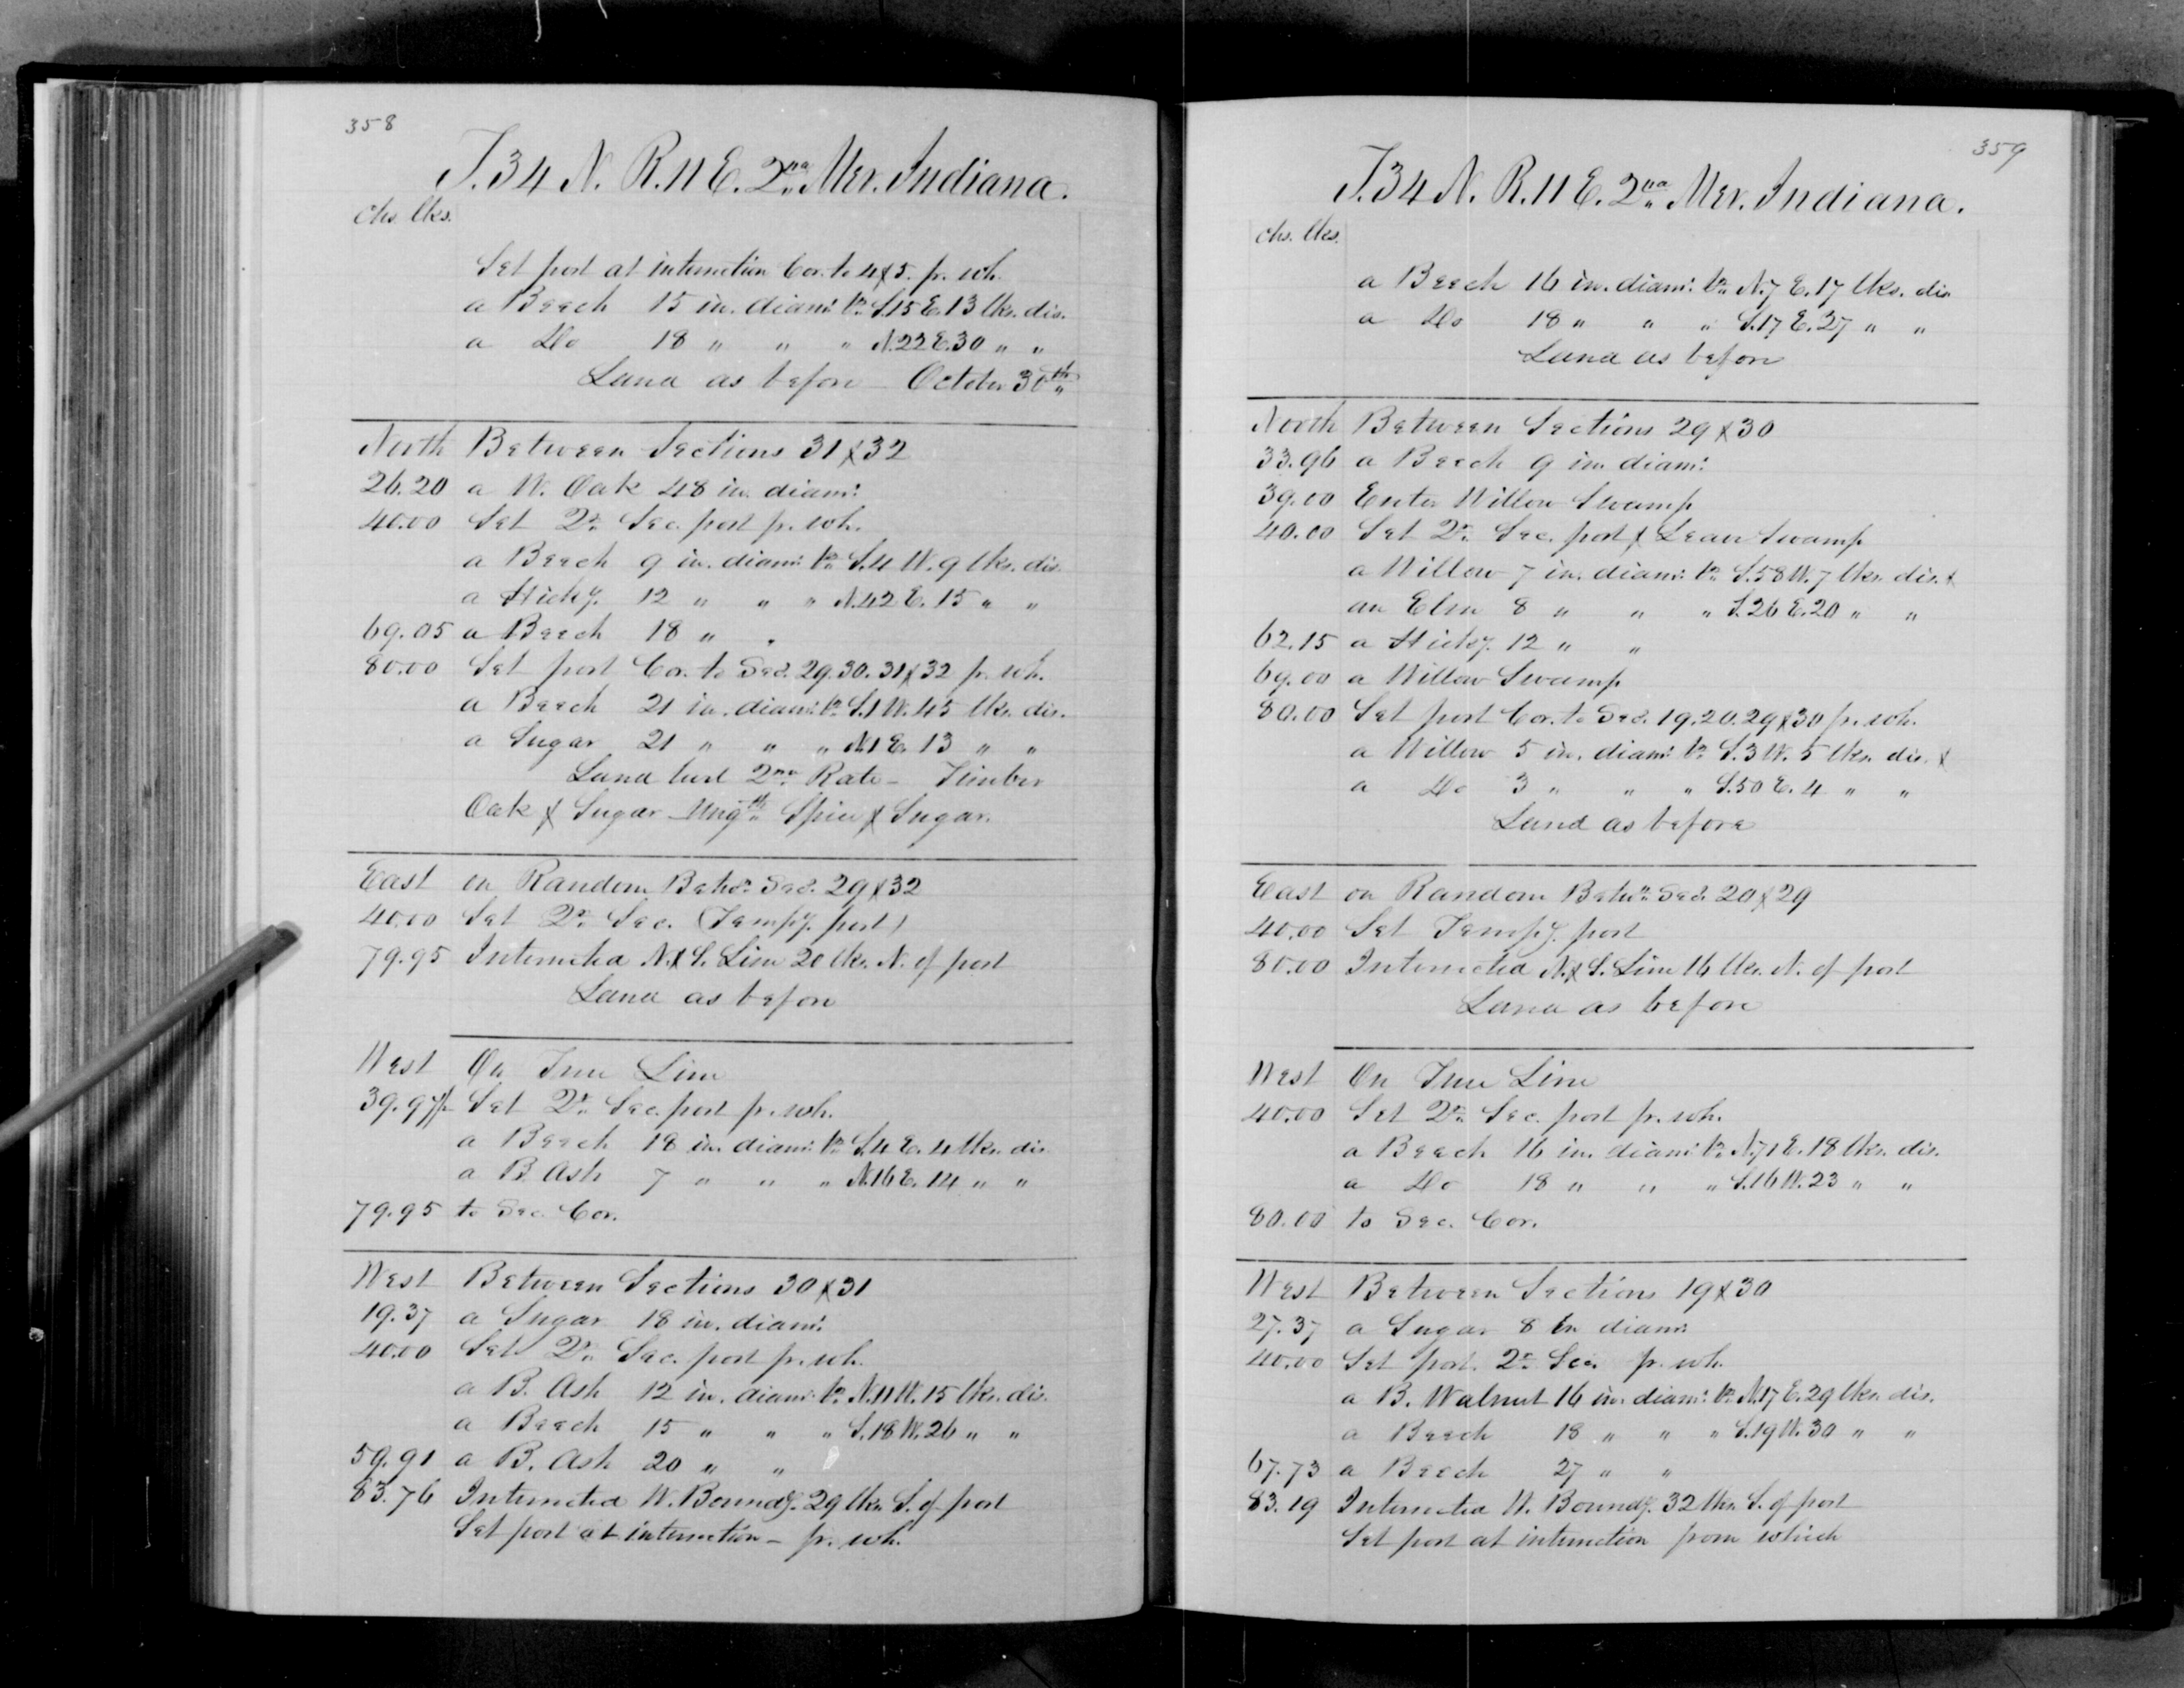 358
T. 34 N. R. 11 E. 2nd Mer. Indiana.
chs. lks.
Set post at intersection Cor. to 4 & 5. fr. wh.
a Beech 15 in. diam: br. S. 15 E. 13 lks. dis.
a Do 18 " " " N. 22 E. 30 " "
Land as before – October 30th
North Between Sections 31 & 32
26.20 a W. Oak 48 in. diam:
40.00 Set Qr. Sec. post fr. wh.
a Beech 9 in. diam: br. S. 4 W. 9 lks. dis.
a Hicky. 12 " " " N. 42 E. 15 " "
69.05 a Beech 18 " "
80.00 Set post Cor. to Secs. 29. 30. 31 & 32 fr. wh.
a Beech 21 in. diam: br. S. 1 W. 45 lks. dis.
a Sugar 21 " " " N. 1 E. 13 " "
Land hurl 2nd Rate – Timber
Oak & Sugar – Ungth Spice & Sugar.
East on Random Betwn. Secs. 29 & 32
40.00 Set Qr. Sec. (Tempy. post)
79.95 Intersected N. & S. Line 20 lks. N. of post
Land as before
West On True Line
39.97½ Set Qr. Sec. post fr. wh.
a Beech 18 in. diam: br. S. 4 E. 4 lks. dis.
a B. Ash 7 " " " N. 16 E. 14 " "
79.95 to Sec. Cor.
West Between Sections 30 & 31
19.37 a Sugar 18 in. diam:
40.00 Set Qr. Sec. post fr. wh.
a B. Ash 12 in. diam: br. N. 11 W. 15 lks. dis.
a Beech 15 " " " S. 18 W. 26 " "
59.91 a B. Ash 20 " "
83.76 Intersected W. Boundy. 29 lks. S. of post
Set post at intersection – fr. wh.
359
T. 34 N. R. 11 E. 2nd Mer. Indiana.
chs. lks.
a Beech 16 in. diam: br. N. 7 E. 17 lks. dis
a Do 18 " " " S. 17 E. 27 " "
Land as before
North Between Sections 29 & 30
33.96 a Beech 9 in. diam:
39.00 Enter Willow Swamp
40.00 Set Qr. Sec. post & Leave Swamp
a Willow 7 in. diam: br. S. 58 W. 7 lks. dis. &
an Elm 8 " " " S. 26 E. 20 " "
62.15 a Hicky. 12 " "
69.00 a Willow Swamp
80.00 Set post Cor. to Secs. 19. 20. 29 & 30 fr. wh.
a Willow 5 in. diam: br. S. 3 W. 5 lks. dis. &
a Do 3 " " " S. 50 E. 4 " "
Land as before
East on Random Betwn. Secs. 20 & 29
40.00 Set Tempy. post
80.00 Intersected N. & S. Line 16 lks. N. of post
Land as before
West On True Line
40.00 Set Qr. Sec. post fr. wh.
a Beech 16 in. diam: br. N. 71 E. 18 lks. dis.
a Do 18 " " " S. 16 W. 23 " "
80.00 to Sec. Cor.
West Between Sections 19 & 30
27.37 a Sugar 8 in diam:
40.00 Set post Qr. Sec. fr. wh.
a B. Walnut 16 in. diam: br. N. 17 E. 29 lks. dis.
a Beech 18 " " " S. 19 W. 30 " "
67.73 a Beech 27 " "
83.19 Intersected W. Boundy. 32 lks. S. of post
Set post at intersection from which